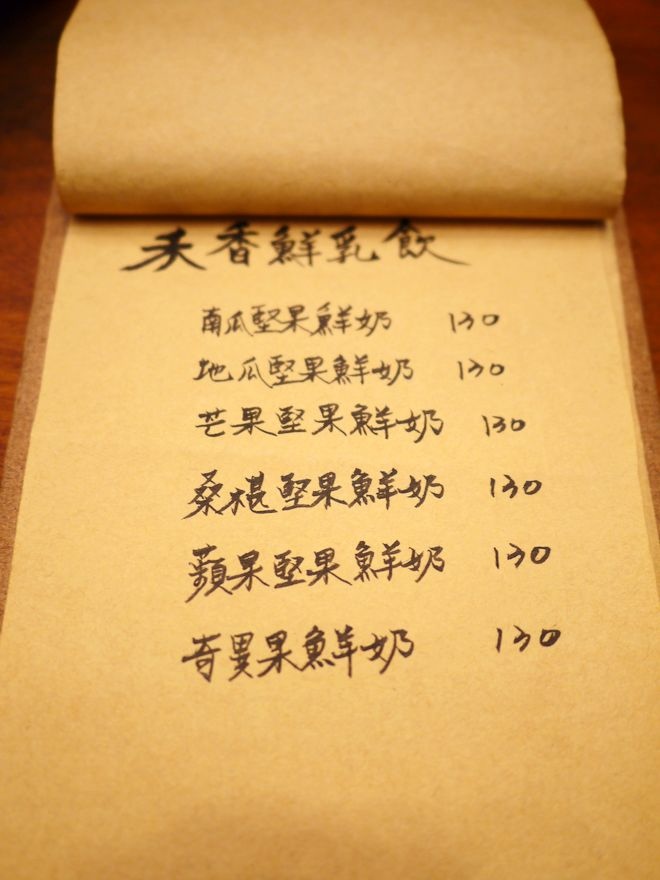 禾香鮮乳飲
南瓜堅果鮮奶 130
地瓜堅果鮮奶 130
芒果堅果鮮奶 130
桑椹堅果鮮奶 130
蘋果堅果鮮奶 130
奇異果鮮奶 130